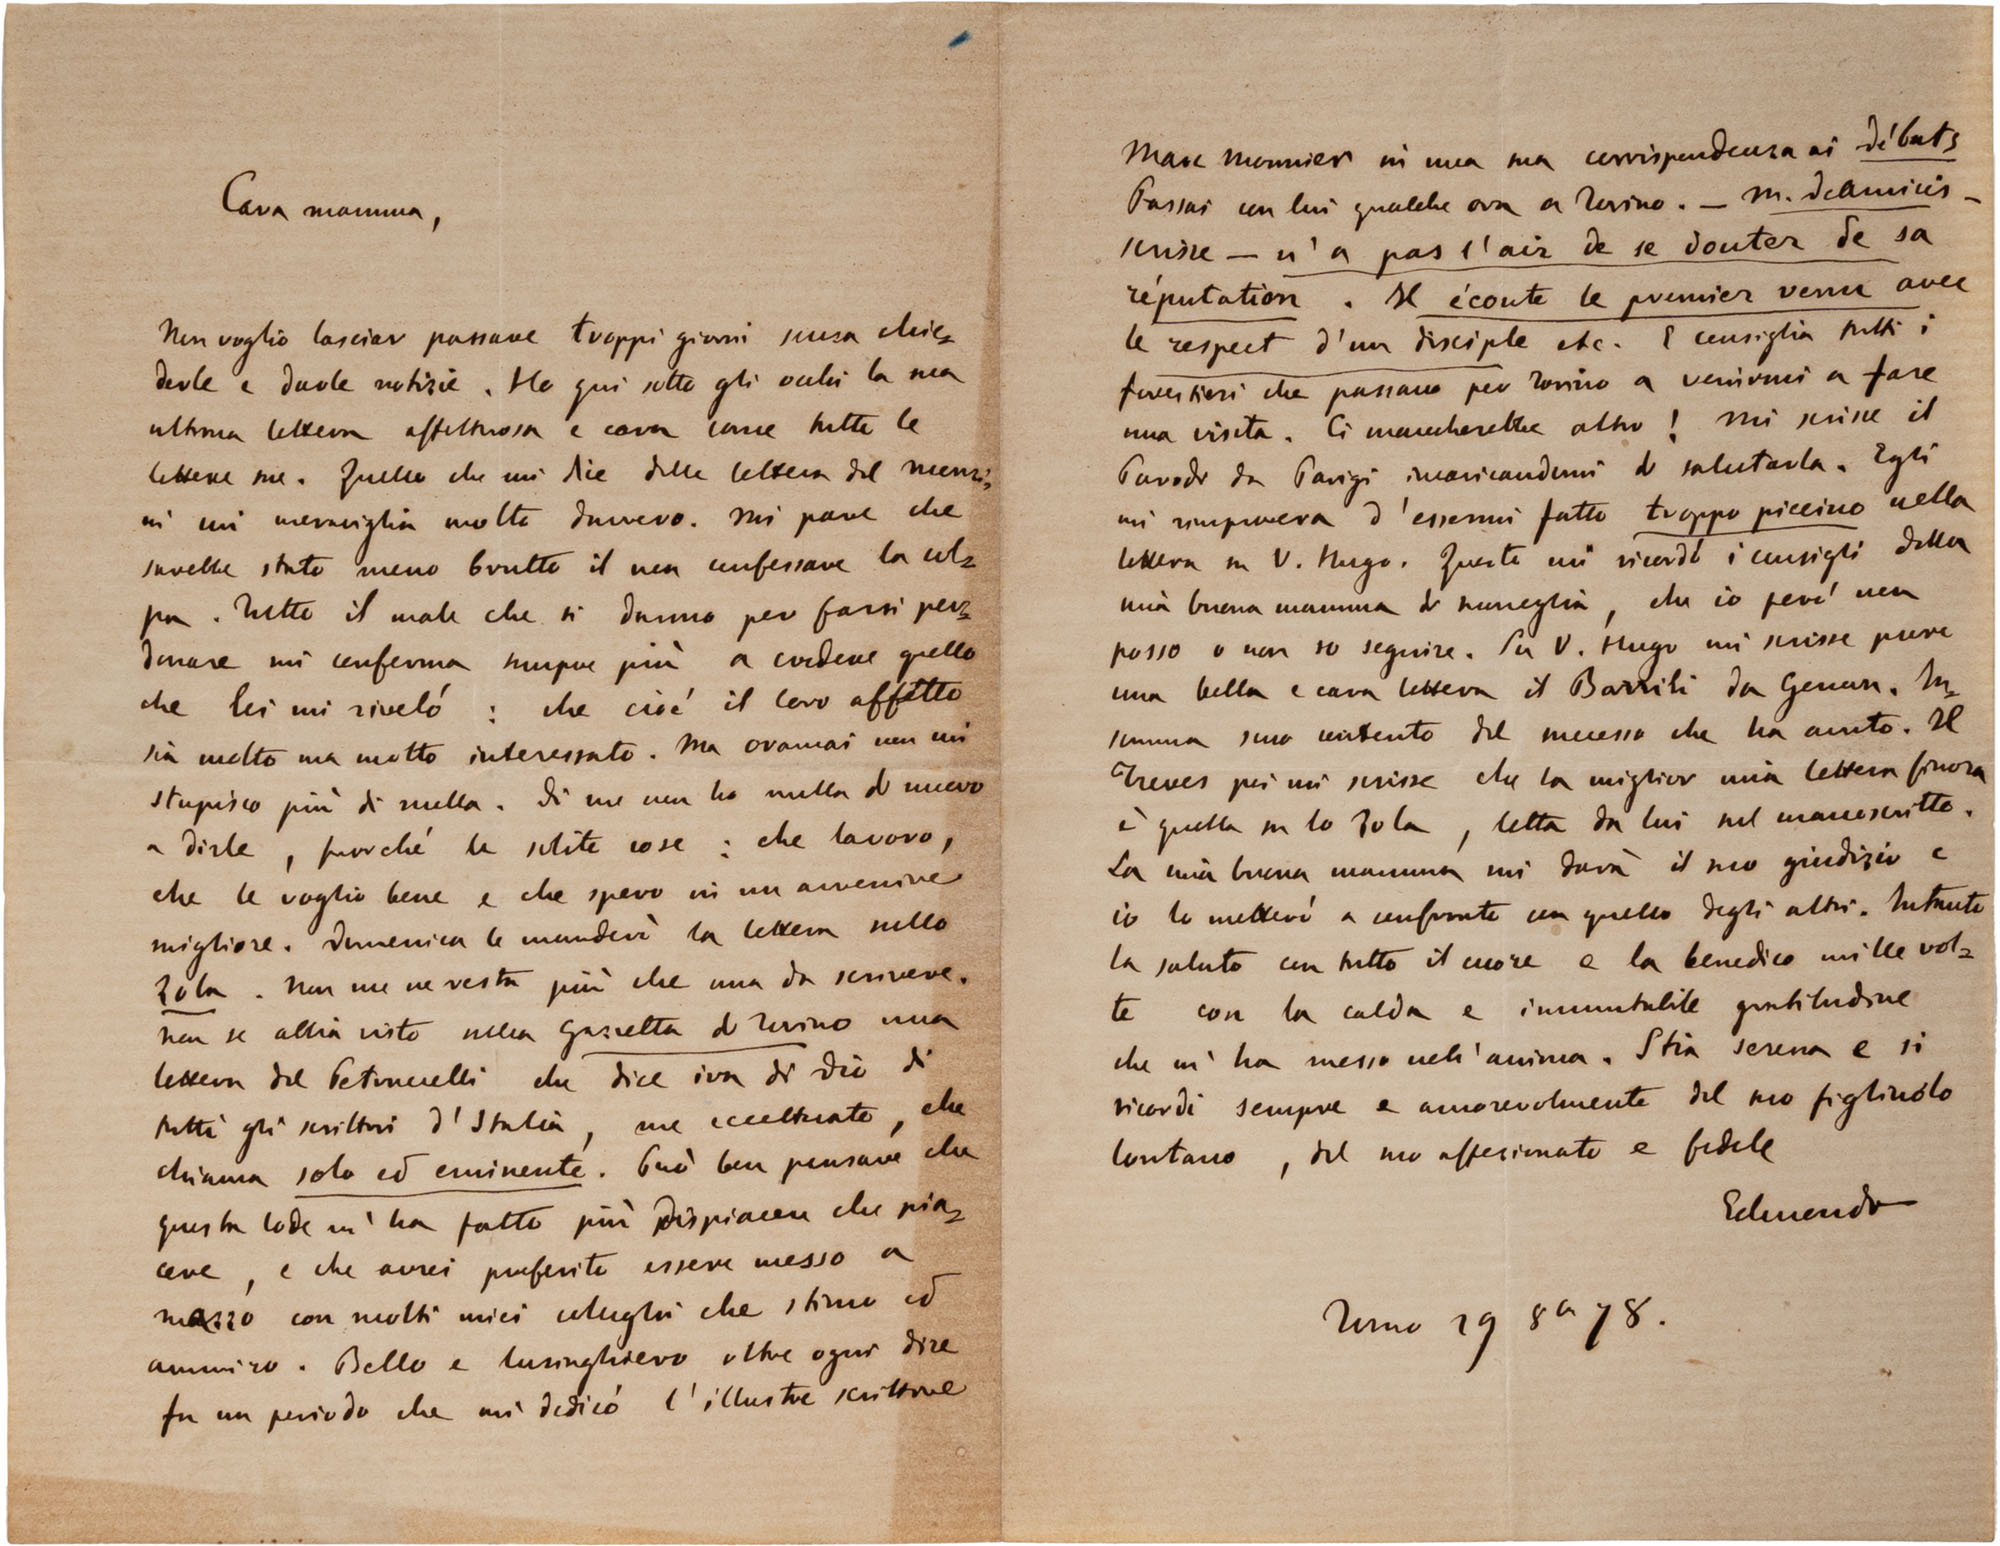 Cara mamma,
Non voglio lasciar passare troppi giorni senza chie-
derle e darle notizie. Ho qui sotto gli occhi la sua
ultima lettera affettuosa e cara come tutte le
lettere sue. Quello che mi dice della lettera del
ni mi meraviglia molto davvero. Mi pare che
sarebbe stato meno brutto il non confessare la col-
pa. Tutto il male che si danno per farsi per-
donare mi conferma sempre più a credere quello
che lei mi rivelò: che cioè il loro affetto
sia molto ma molto interessato. Ma oramai non mi
stupisco più di nulla. Di me non ho nulla di nuovo
a dirle, fuorché le solite cose: che lavoro,
che le voglio bene e che spero in un avvenire
migliore. Domenica le manderò la lettera sullo
Zola. Non me ne resta più che una da scrivere.
Non so se abbia visto nella Gazzetta di Torino una
lettera del Petruccelli che dice ira di Dio di
tutti gli scrittori d'Italia, me eccettuato, che
chiama solo ed eminente. Può ben pensare che
questa lode m'ha fatto più dispiacere che pia-
cere, e che avrei preferito essere messo a
mazzo con molti miei colleghi che stimo ed
ammiro. Bello e lusinghiero oltre ogni dire
fu un periodo che mi dedicò l'illustre scrittore
Marc Monnier in una sua corrispondenza ai débats
Passai con lui qualche ora a Torino. — M. deAmicis -
scrisse — n'a pas l'air de se douter de sa
réputation. Il écoute le premier venu avec
le respect d'un disciple etc. E consiglia tutti i
forestieri che passano per Torino a venirmi a fare
una visita. Ci mancherebbe altro! Mi scrisse il
Parodi da Parigi incaricandomi di salutarla. Egli
mi rimprovera d'essermi fatto troppo piccino nella
lettera su V. Hugo. Questo mi ricordò i consigli della
mia buona mamma di, che io però non
posso o non so seguire. Su V. Hugo mi scrisse pure
una bella e cara lettera il Barrili da Genova. In-
somma sono contento del successo che ha avuto. Il
Treves poi mi scrisse che la miglior mia lettera finora
è quella su lo Zola, letta da lui sul manoscritto.
La mia buona mamma mi darà il suo giudizio e
io lo metterò a confronto con quello degli altri. Intanto
la saluto con tutto il cuore e la benedico mille vol-
te con la calda e immutabile gratitudine
che m'ha messo nell'anima. Stia serena e si
ricordi sempre e amorevolmente del suo figliuolo
lontano, del suo affezionato e fedele
Edmondo
Torino 29 8a 78.